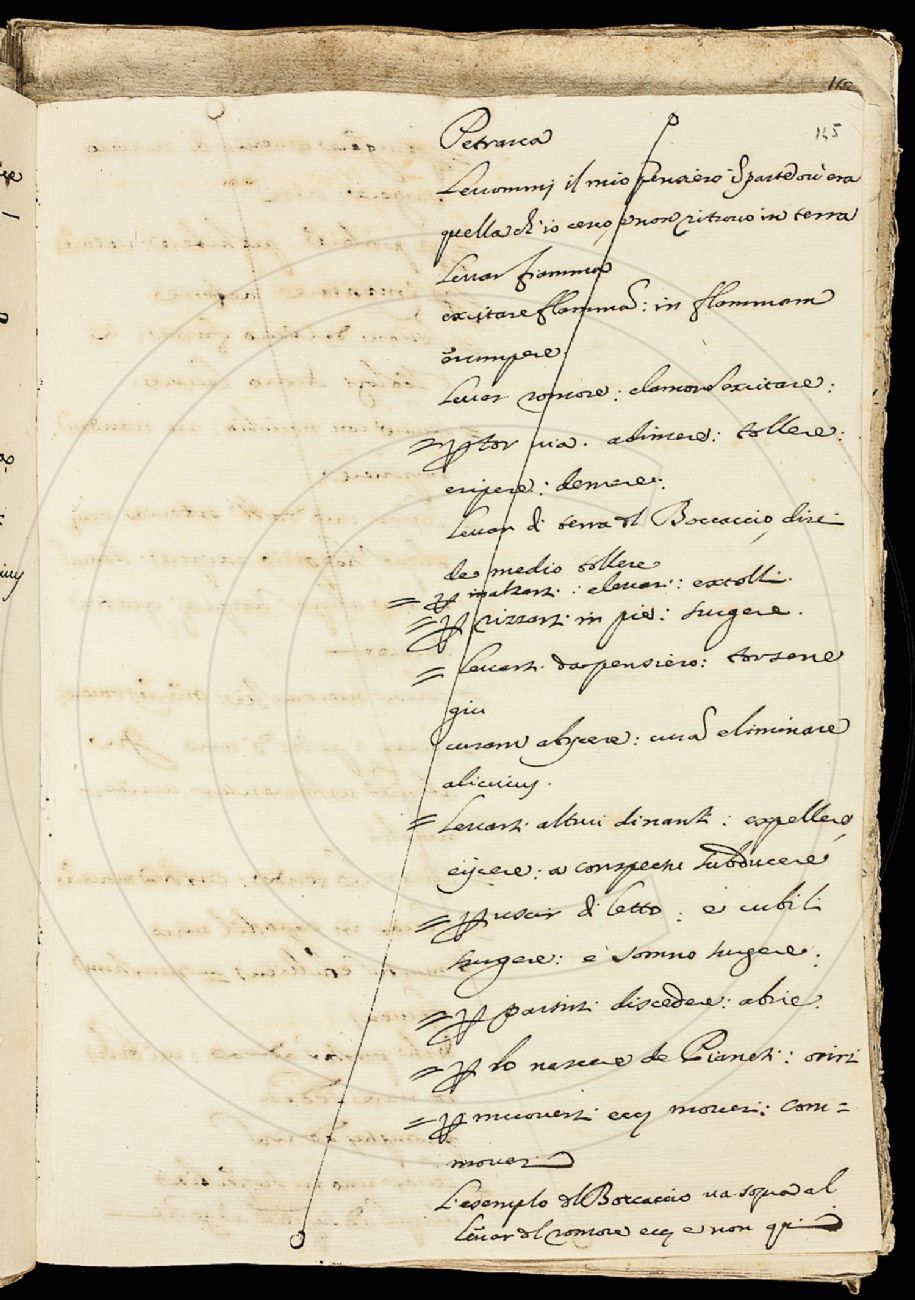 145
Petrarca
Leuommi il mio pensiero in parte dou' era
quella ch' io cerco, e non ritrouo in terra
Leuar fiamma
excitare flammā: in flammam
erumpere:
Leuar romore: clamorē excitare:
= ꝑ tor uia. adimere: tollere:
eripere: demere:
Leuar di terra dl Boccaccio, direi
de medio tollere
= ꝑ inalzarsi: eleuari: extolli.
= ꝑ rizzarsi in pie: surgere.
= leuarsi da pensiero: torsene
giu
curam abijcere: curā eliminare
alicuius.
= Leuarsi altrui dinanti: expellere,
eijcere: a conspectu subducere
= ꝑ uscir di letto: e cubili
surgere: è somno surgere:
= ꝑ partirsi discedere: abire:
= ꝑ lo nascere de Pianeti: oriri
= ꝑ muouersi ecc moueri: com=
moueri
L'esempio dl Boccaccio ua sopra al
Leuar dl romore ecc e non qui